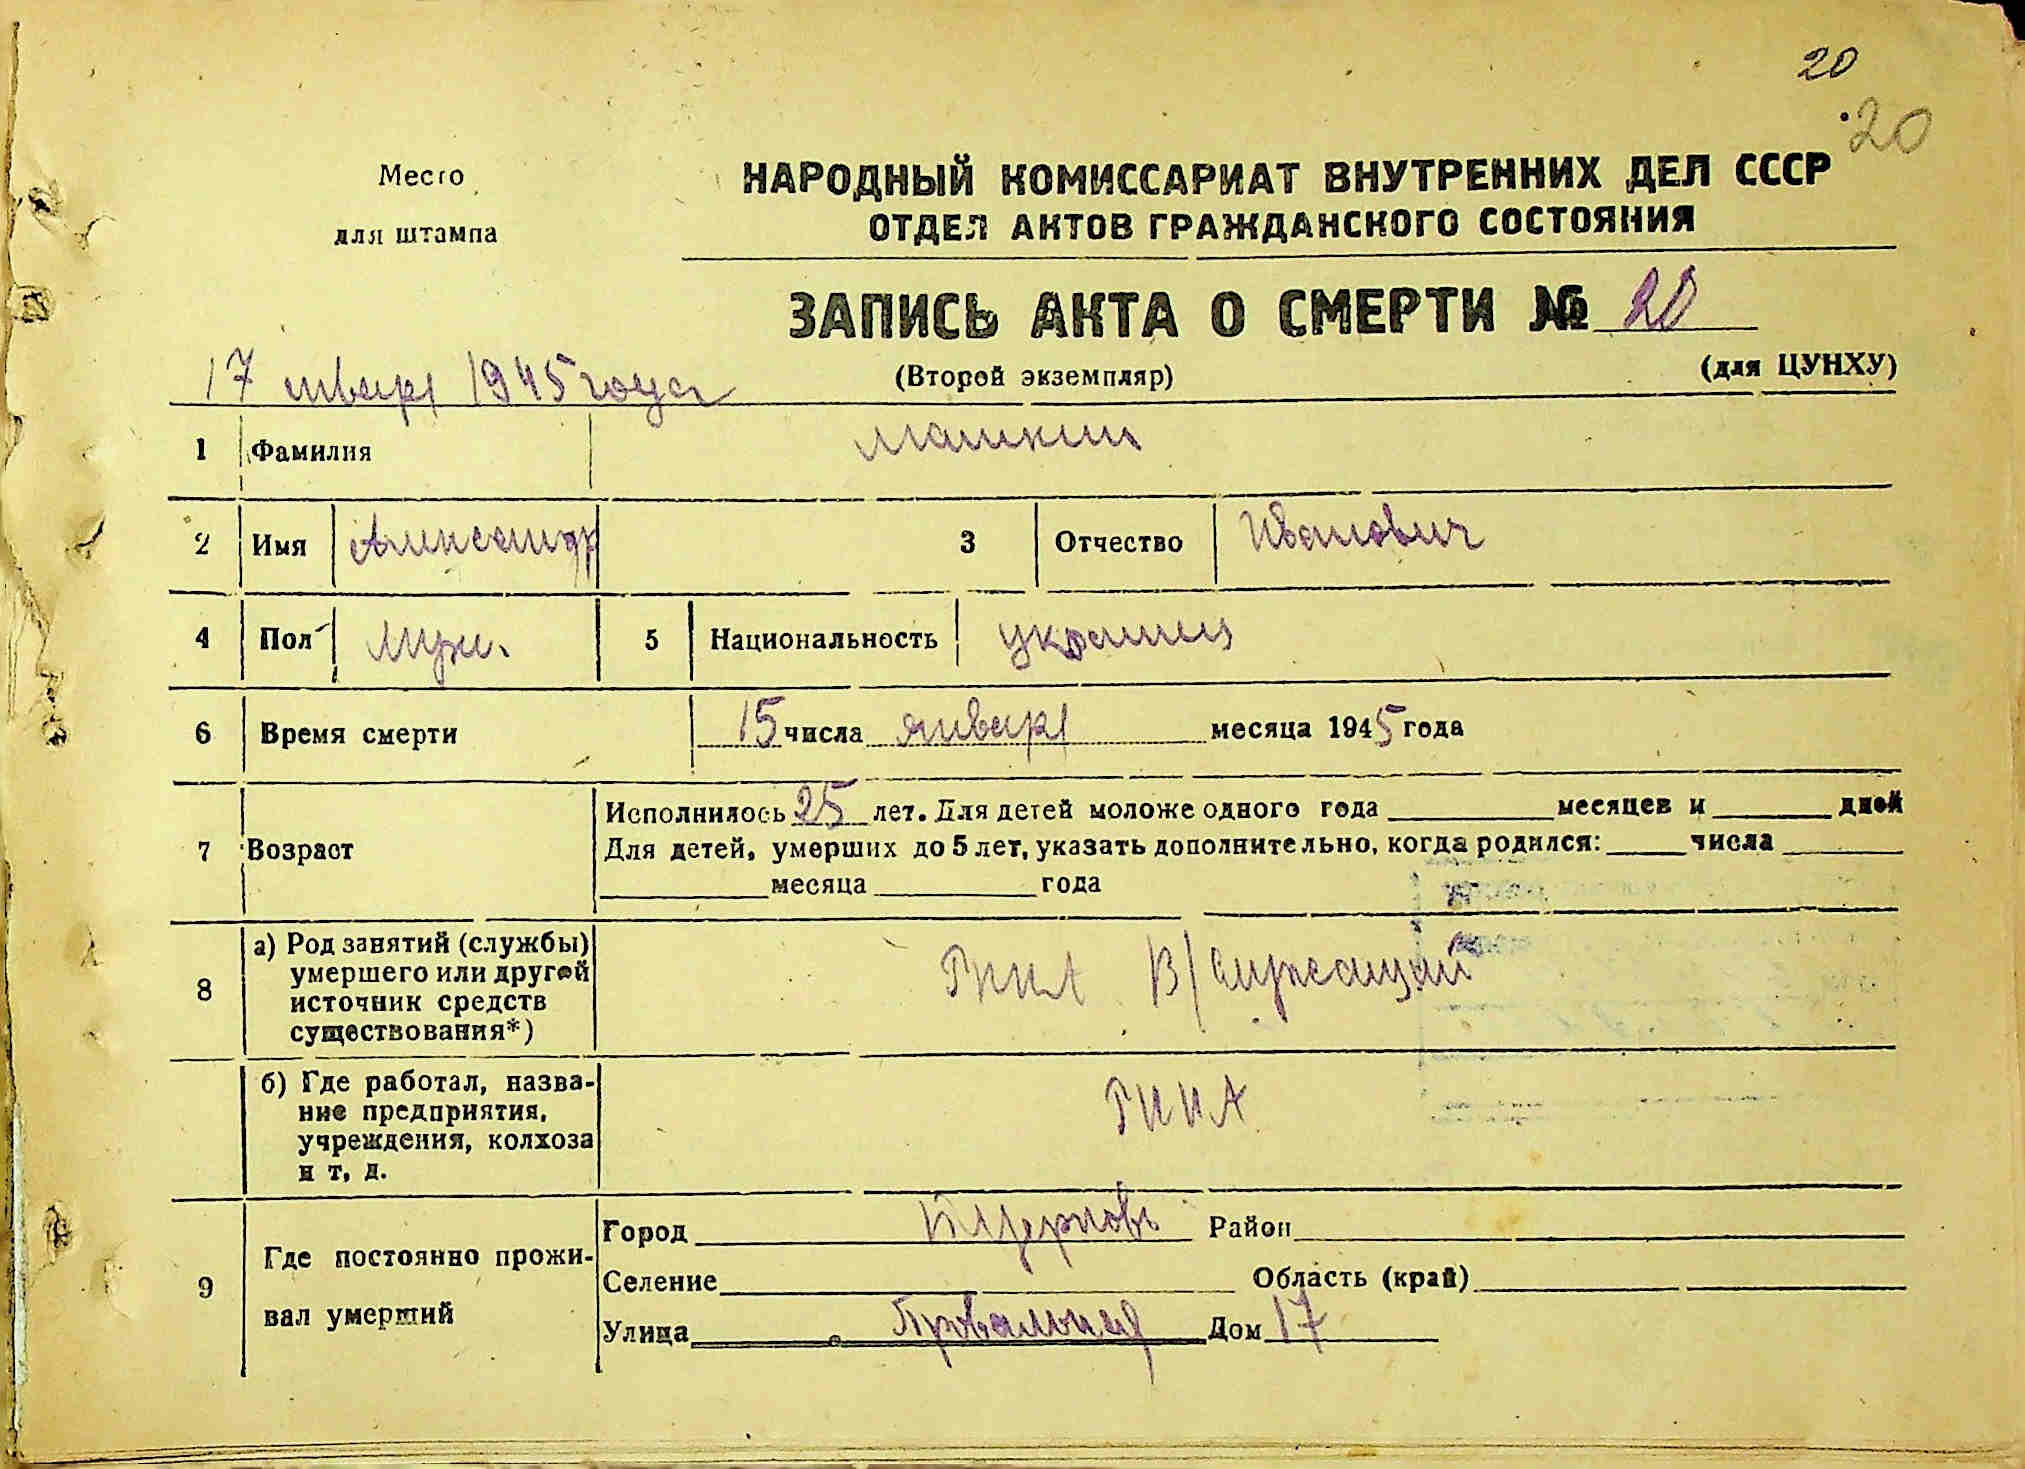 20
20
Место
для штампа
НАРОДНЫЙ КОМИССАРИАТ ВНУТРЕННИХ ДЕЛ СССР
ОТДЕЛ АКТОВ ГРАЖДАНСКОГО СОСТОЯНИЯ
ЗАПИСЬ АКТА О СМЕРТИ № 20
(Второй экземпляр)
(для ЦУНХУ)
17 январ 1945 года
1 Фамилия Машкин
2 Имя Александр 3 Отчество Иванович
4 Пол Муж. 5 Национальность украинец
6 Время смерти 15 числа январ месяца 1945 года
7 Возраст
Исполнилось 25 лет. Для детей моложе одного года месяцев и дней
Для детей, умерших до 5 лет, указать дополнительно, когда родился: числа
месяца года
8
а) Род занятий (службы)
умершего или другой
источник средств
существования*)
В/служащий
б) Где работал, назва-
ние предприятия,
учреждения, колхоза
и т, д.
9
Где постоянно прожи-
вал умерший
Город Район
Селение Область (край)
Улица Провальная Дом 17